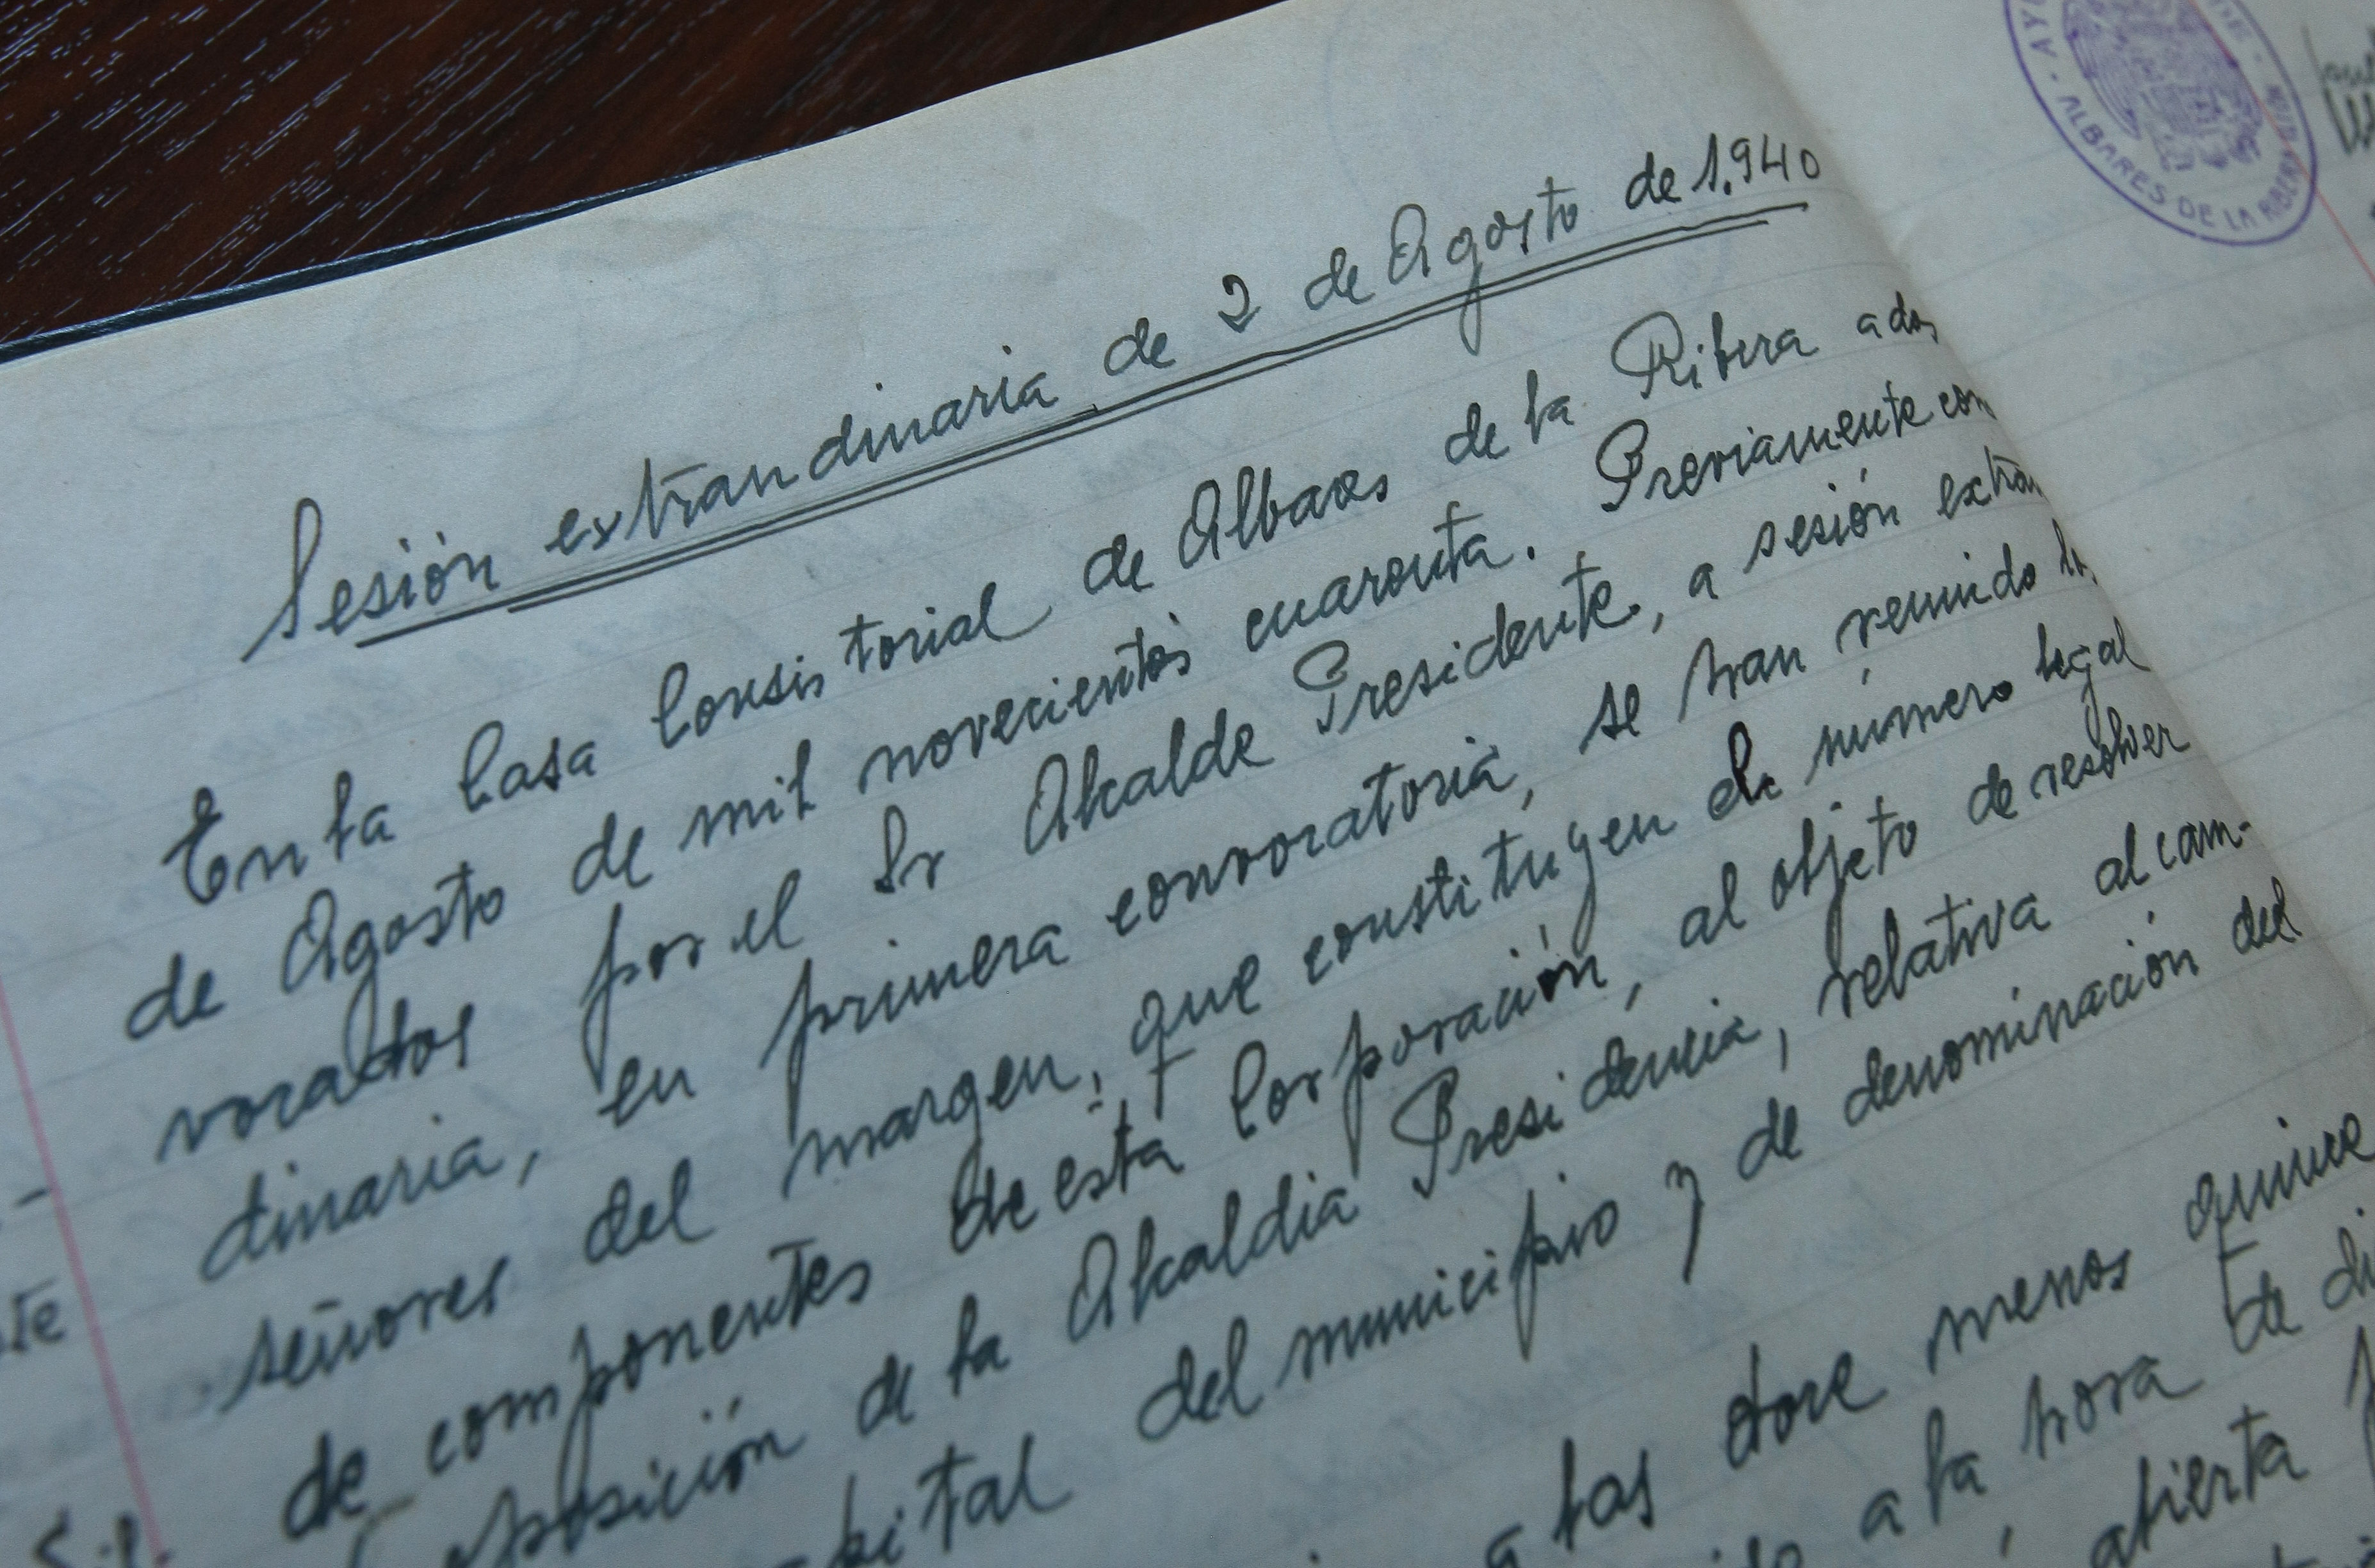 Sesión extraordinaria de 2 de Agosto de 1.940
En la Casa Consistorial de Albares de la Ribera a dos
de Agosto de mil novecientos cuarenta. Previamente con
vocados por el Sr Alcalde Presidente, a sesión extraor
dinaria, en primera convocatoria, se han reunido los
señores del margen, que constituyen el número legal
de componentes de esta Corporación, al objeto de resolver
posición de la Alcaldia Presidencia, relativa al cam-
pital del municipio y de denominación del
a las doce menos quince
a la hora de
abierta
AYU
DE
ALBARES DE LA RIBERA